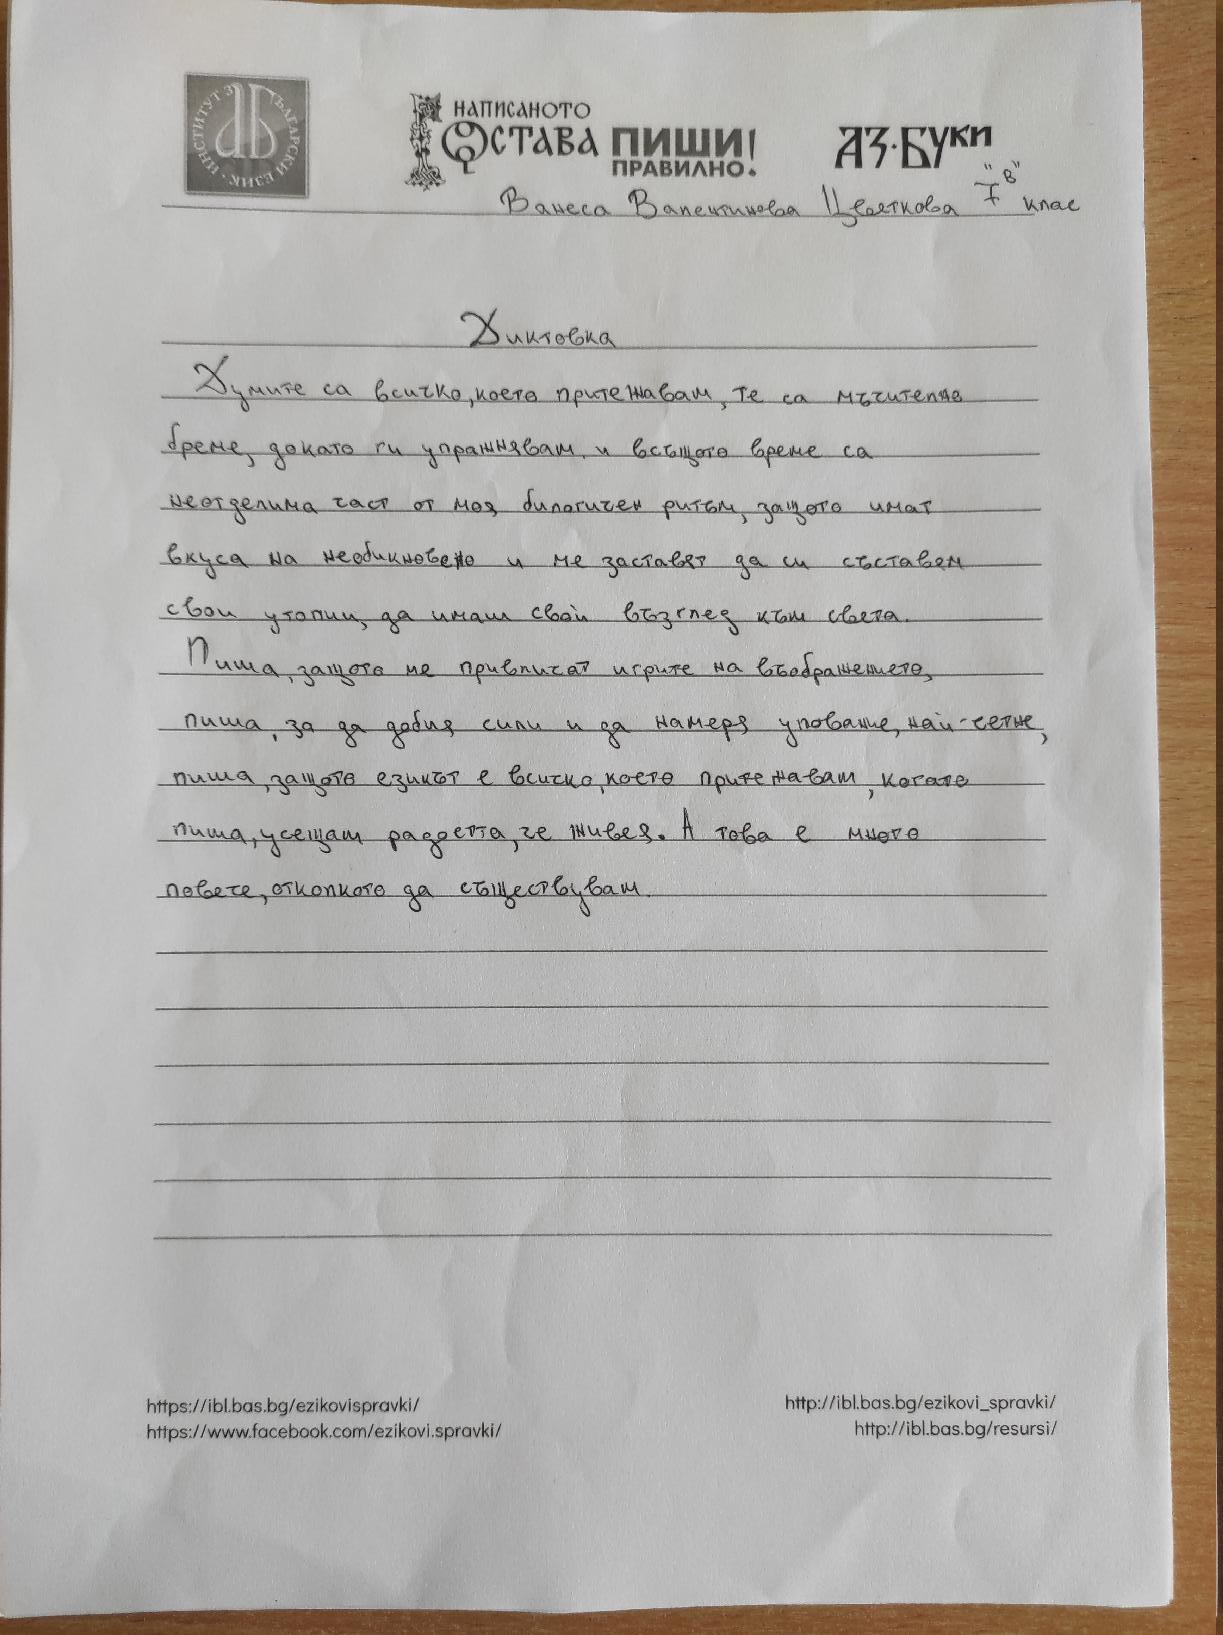 ИНСТИТУТ ЗА БЪЛГАРСКИ ЕЗИК
НАПИСАНОТО
ОСТАВА ПИШИ!
ПРАВИЛНО!
АЗ·БУКИ
Ванеса Валентинова Цветкова I "в" клас
Диктовка
Думите са всичко, което притежавам, те са мъчително
бреме, докато ги упражнявам и всъщото време са
неотделима част от моя билогичен ритъм, защото имат
вкуса на необикновено и ме заставят да си съставем
свои утопии, да имаш свой възглед към света.
Пиша, защото ме привличат игрите на въображението,
пиша, за да добия сили и да намеря упование, най-сетне,
пиша, защото езикът е всичко, което притежавам, когато
пиша, усещам радостта, че живея. А това е много
повече, отколкото да съществувам.
https://ibl.bas.bg/ezikovispravki/
https://www.facebook.com/ezikovi.spravki/
http://ibl.bas.bg/ezikovi_spravki/
http://ibl.bas.bg/resursi/